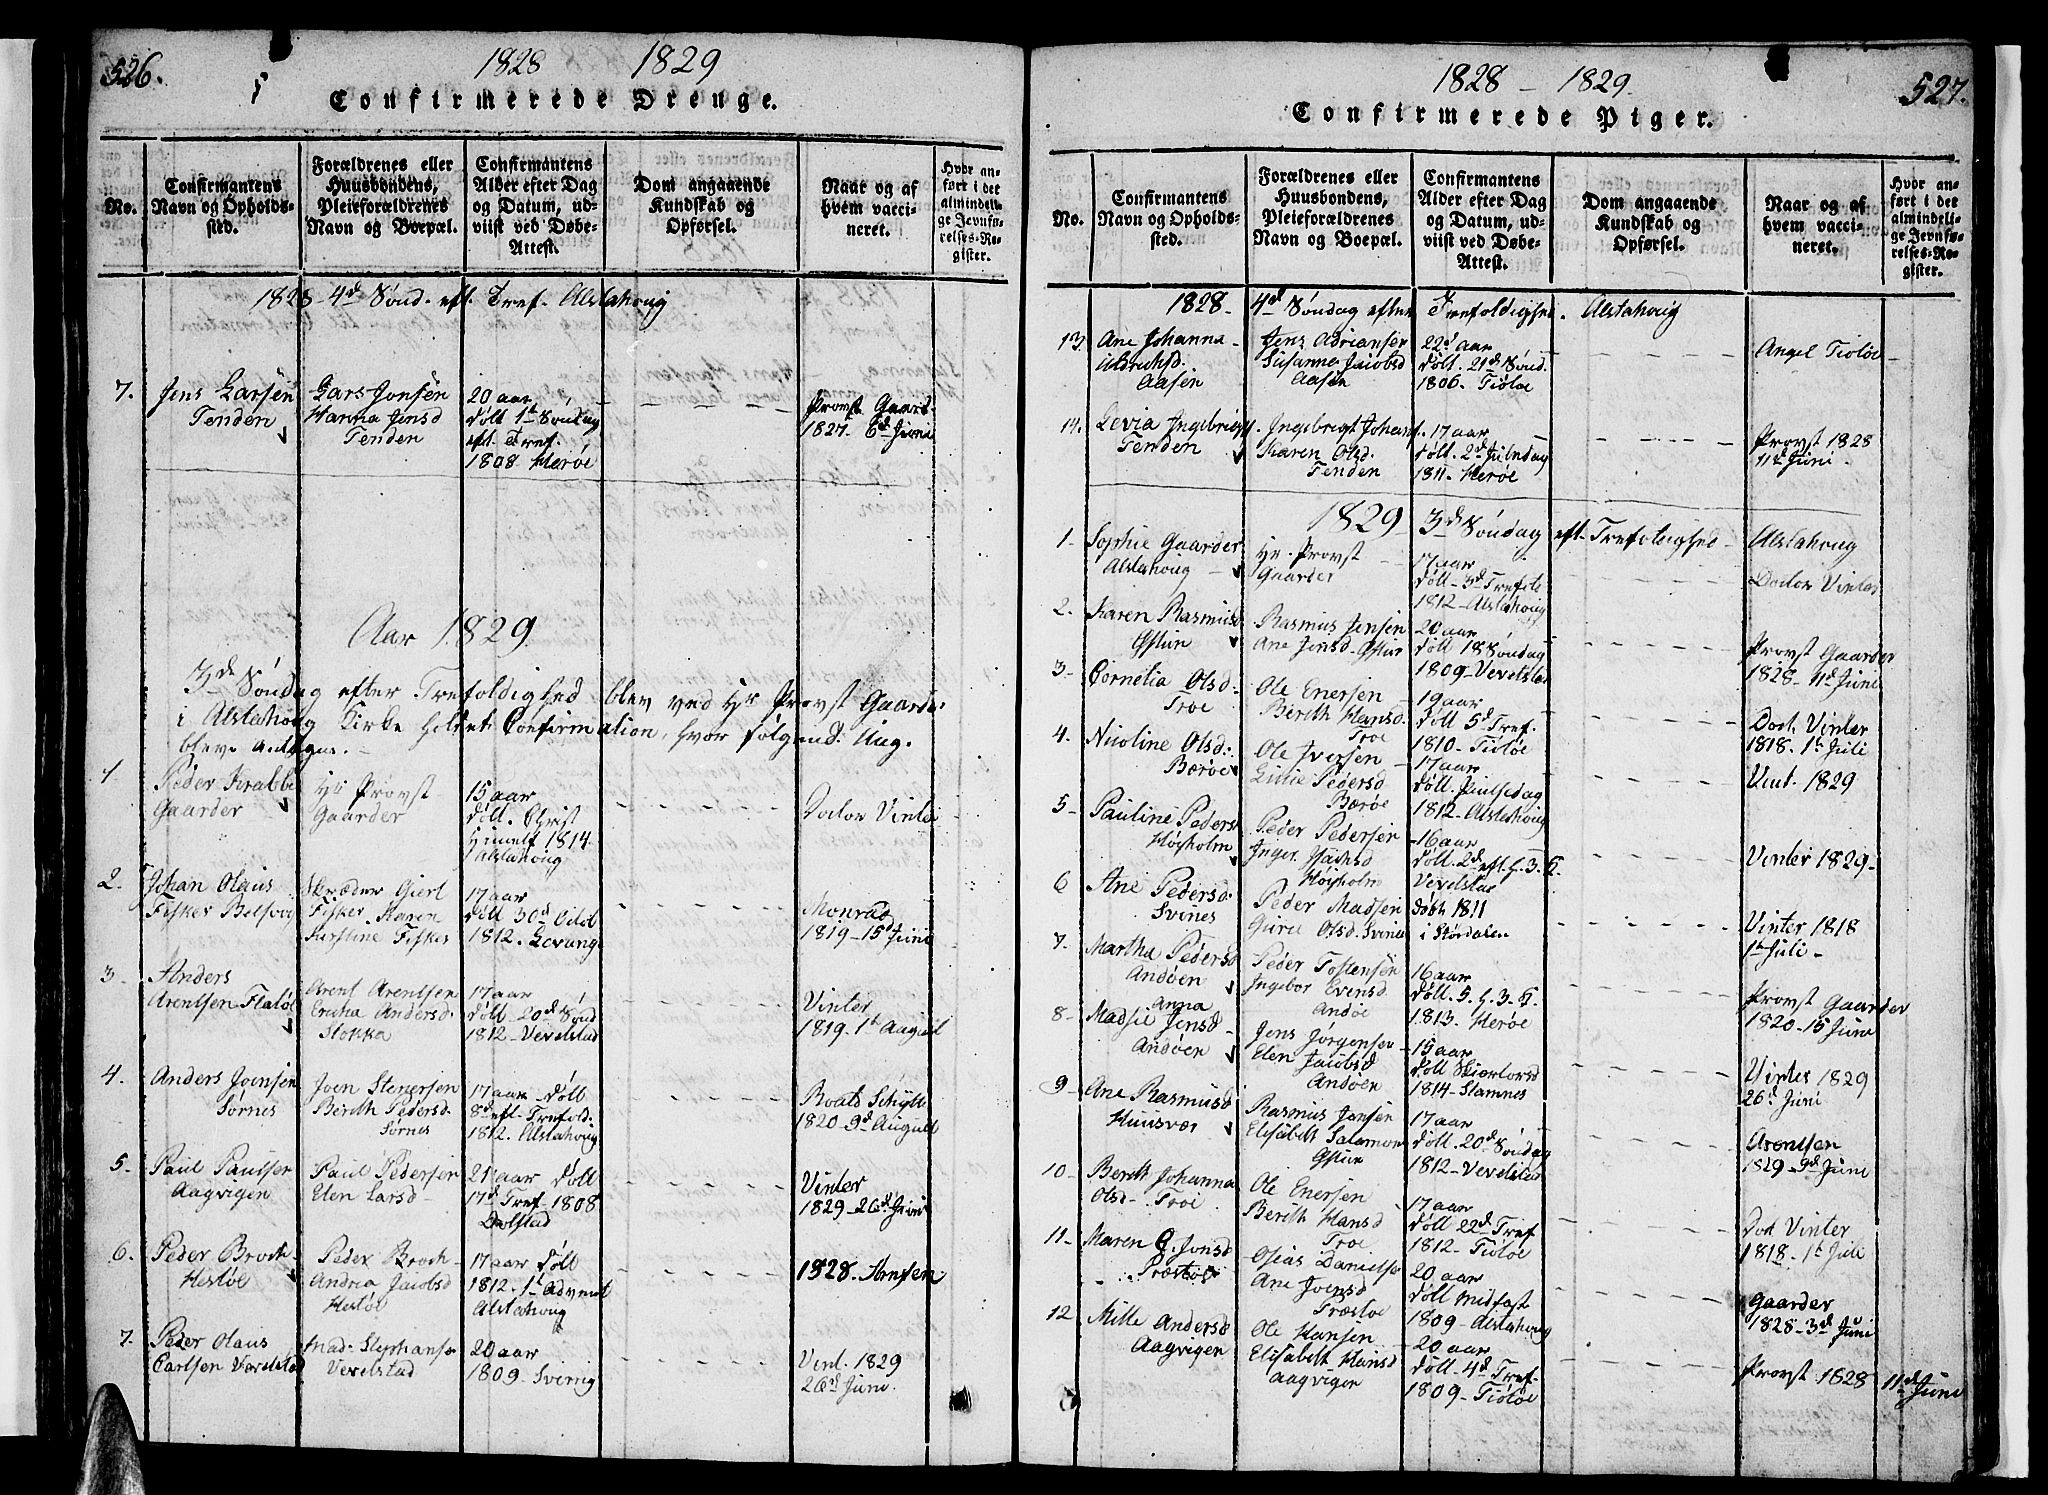 526.
1828 1829
Confirmerede Drenge.
No.
Confirmantens
Navn og Opholds-
sted.
Forældrenes eller
Huusbondens,
Pleieforældrenes
Navn og Boepæl.
Confirmantens
Alder efter Dag
og Datum, ud-
viist ved Døbe-
Attest.
Dom angaaende
Kundskab og
Opførsel.
Naar og af
hvem vacci-
neret.
Hvor an-
ført i det
almindeli-
ge Jevnfø-
relses-Re-
gister.
1828 - 4d Sønd. eft. Tref. Alstahoug
7. Jens Larsen
Tenden
Lars Jonsen
Hanna Jensd
Tenden
20 aar
døbt 1t Søndag
eft. Tref.
1808. Herøe
Provst Gaard-
1827. 6d Juni
Aar 1829
3de Søndag efter Trefoldighed blev ved Hr Provst Gaarder
i Alstahoug Kirke holdet Confirmation, hvor følgend: Ung.
bleve antagne. -
1 Peder Krabbe
Gaarder
Hr Provst
Gaarder
15 aar
døbt. Christ
Himelf 1814.
Alstahoug
Doctor Vinter
2. Johan Olaus
Fisker Belsvog
Skræder Giert
Fisker Karen
Kirstine Fisker
17 aar
døbt 30d
1812. Levang
Monrad
1819 - 15d Juni
3 Anders
Arentsen Flatøe
Arent Arentsen
Ericha Andersd.
Stokka
17 aar
døbt 20d Sønd
1812 - Vevelstad
Vinter
1819. 1t August
4. Anders Joensen
Sørnes
Joen Stenersen
Berith Pedersd.
Sørnes
17 aar døbt
8d eft. Trefold:
1812. Alstahoug
Roald Schytt
1820 - 9d August
5. Paul Paulsen
Aagvigen
Paul Pedersen
Elen Larsd -
21 aar døbt
17d Tref 1808
Dolstad
Vinter
1829 - 26d Juni
6. Peder Broch
Hestøe
Peder Broch -
Andrea Jacobsd
Hestøe
17 aar døbt
1812. 1t Advent
Alstahoug
1828. Arntsen
7. Peder Olaus
Carlsen Vevelstad
Mad: Stephansen
Vevelstad
20 aar
1809. Sverrig
Vint. 1829
26d Juni.
527.
1828 - 1829.
Confirmerede Piger.
No.
Confirmantens
Navn og Opholds-
sted.
Forældrenes eller
Huusbondens,
Pleieforældrenes
Navn og Boepæl.
Confirmantens
Alder efter Dag
og Datum, ud-
viist ved Døbe-
Attest.
Dom angaaende
Kundskab og
Opførsel.
Naar og af
hvem vacci-
neret.
Hvor an-
ført i det
almindeli-
ge Jevnfø-
relses-Re-
gister.
1828 - 4d Søndag efter Trefoldighed. Alstahoug
13. Ane Johanna
Aasen
Jens Adriansen
Susanna Jacobsd
Aasen
22d aar
døbt. 21d Sønd.
1806. Tiøtøe
Angel Tiøtøe -
14. Levia Ingebrigt
Tenden
Ingebrigt Johans.
Karen Olsd.
Tenden
17 aar
døbt. 2d Juledag
1811. Herøe
Provst 1828
11d Juni -
1829 3d Søndag eft. Trefoldighed - Alstahoug
1 - Sophie Gaarder
Alstahoug
Hr. Provst
Gaarder
17 aar
døbt - 3d Trefold
1812 - Alstahoug
Doctor Vinter
2. Karen Rasmusd
Gstun
Rasmus Jensen
Ane Jensd - Gstun
20 aar
døbt 18 Søndag
1809 - Vevelstad
Provst Gaarder
1828 - 11d Juni
3 - Cornelia Olsd:
Troe
Ole Enersen -
Berith Hansd.
Troe
19 aar
døbt 5d Tref.
1810 - Tiøtøe
Doct. Vinter
1818. 1t Juli
4. Nicoline Olsd:
Bærøe
Ole Iversen
Pedersd
Bærøe
17 aar
døbt. Pintsedag
1812 - Alstahoug
Vint. 1829
5 - Pauline Pedersd
Høiholm
Peder Pedersen
Inger Isachsd
Høiholm
- 16 aar
døbt. 2d eft. H. 3. K.
Vevelstad
Vinter 1829 -
6 Ane Pedersd:
Svines
Peder Madsen
Guru Olsd. Svines
døbt 1811
i Størdalen
Vinter 1818
1t Juli -
7. Martha Pedersd
Andøen
Peder Tostensen
Ingebor Evensd
Andøe
16 aar
døbt. 5. H. 3. K.
1813. Herøe
Provst Gaarder
1820 - 15 Juni
8 - Madsie Anna Jensd
Andøen
Jens Jørgensen
Elen Jacobsd
Andøen
- 15 aar
døbt Skiærtorsd
1814 - Stamnes
Vinter 1829
26d Juni
9 - Ane Rasmusd
Huusvær
Rasmus Jensen
Elisabeth Salamon
Gstun
17 aar
døbt. 20d Søndag
1812 - Vevelstad
Arentsen
1829 - 9d Juni
10 - Berith Johanna
Olsd - Troe
Ole Enersen
Berith Hansd
Troe
17 aar
døbt 22d Tref
1812 - Tiøtøe
Doct Vinter
1818 - 1t Juli
11 - Maren C. Jonsd
Præstøe
Osias Danielse
Ane Joensd
Træstoe
20 aar
døbt midfast
1809 - Alstahoug
Gaarder
1828 - 3d Juni
12 - Mille Andersd
Aagvigen
Ole Hansen -
Elisabeth Hansd
Aagvigen
20 aar
døbt - 4d Tref -
1809 - Tiøtøe
Provst 1828 11d Juni